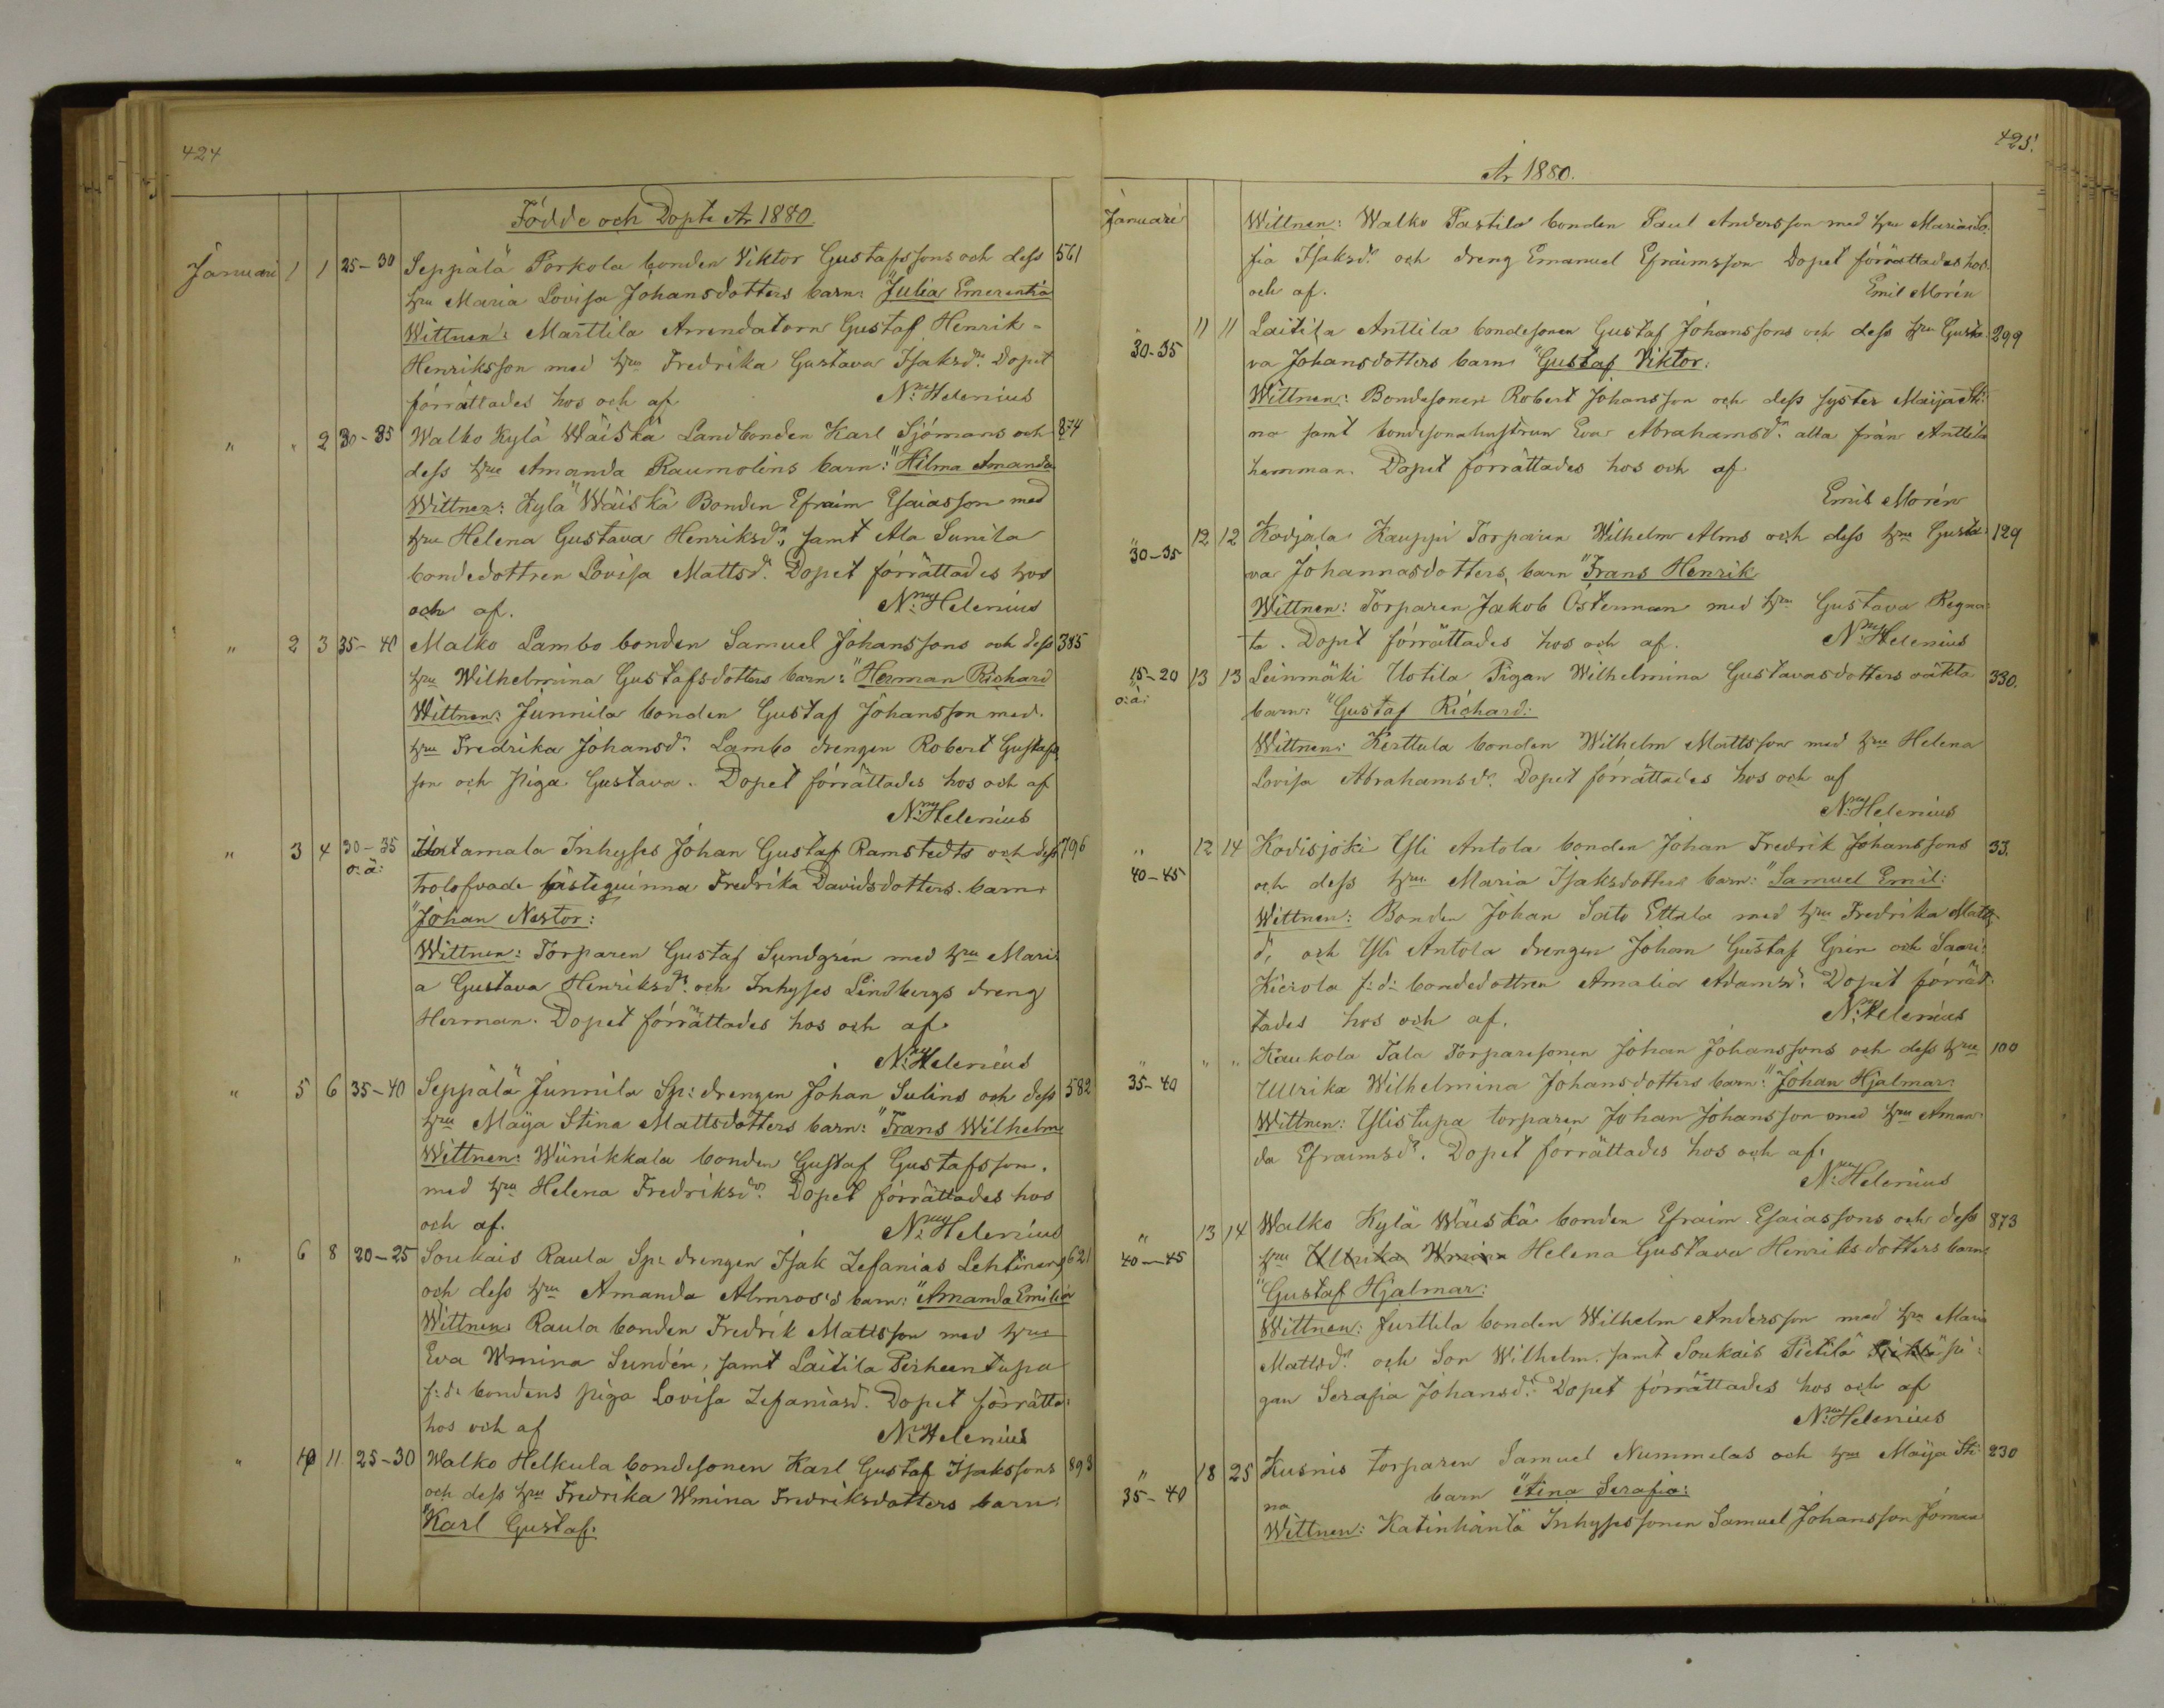 424
Födde och Dopte År 1880.
Januari 1 1 25-30 Seppälä Porkola bonden Viktor Gustafssons och dess 561
hru Maria Lovisa Johansdotters barn: "Julia Emerentia
Wittnen: Marttila Arrendatorn Gustaf Henrik-
Henriksson med hru Fredrika Gustava Isaksdr. Dopet
förrättades hos och af Nny Helenius
" " 2 30-35 Walko Kylä Wäiskä Landbonden Karl Sjömans och 874
dess hru Amanda Raumolins barn: "Hilma Amanda
Wittnen: Kylä Wäiskä Bonden Efraim Esaiasson med
hru Helena Gustava Henriksdr, samt Ala Sunila
bondedottren Lovisa Mattsdr. Dopet förrättades hos
och af. Nny Helenius
" 2 3 35-40 Malko Lambo bonden Samuel Johanssons och dess 385
hru Wilhelmina Gustafsdotters barn: "Herman Richard
Wittnen: Junnila bonden Gustaf Johansson med
hru Fredrika Johansdr. Lambo drengen Robert Gustafs
son och Piga Gustava. Dopet förrättades hos och af
Nny Helenius
" 3 4 30-35 Untamala Inhyses Johan Gustaf Ramstedts och dess 796
o: ä: trolofvade fästeqvinna Fredrika Davidsdotters barn
"Johan Nestor:
Wittnen: Torparen Gustaf Sundgrén med hru Mari-
a Gustava Henriksdr. och Inhyses Lindbergs dreng
Herman. Dopet förrättades hos och af.
Nny Helenius
" 5 6 35-40 Seppälä Junnila Sp: drengen Johan Sulins och dess 582
hru Maija Stina Mattsdotters barn: "Frans Wilhelm
Wittnen: Wünikkala bonden Gustaf Gustafsson.
med hru Helena Fredriksdr. Dopet förrättades hos
och af. Nny Helenius
" 6 8 20-25 Soukais Raula Sp: drengen Isak Zefanias Lehtinens 621
och dess hru Amanda Almros's barn: "Amanda Emilia
Wittnen: Raula bonden Fredrik Mattsson med hru
Eva Wmina Sundén, samt Laitila Perheentupa
f: d: bondens piga Lovisa Zefaniasd. Dopet förrätta:
hos och af Nny Helenius
" 10 11 25-30 Walko Helkula bondesonen Karl Gustaf Isakssons 893
och dess hru Fredrika Wmina Fredriksdotters barn:
"Karl Gustaf.
425.
År 1880.
Januari Wittnen: Walko Pastila bonden Paul Andersson med hru Maria So-
fia Isaksdr. och dreng Emanuel Efraimsson Dopet förrättades hos
och af. Emil Morén
" 30-35 11 11 Laitila Anttila bondesonen Gustaf Johanssons och dess hru Gusta- 299
va Johansdotters barn "Gustaf Viktor:
Wittnen: Bondesonen Robert Johansson och dess syster Maija Sti-
na samt bondesonahustrun Eva Abrahamsdr. alla från Anttila
hemman. Dopet förrättades hos och af
Emil Morén
" 30-35 12 12 Kodjala Kauppi Torparen Wilhelm Alms och dess hru Gusta- 129
va Johannasdotters barn "Frans Henrik
Wittnen: Torparen Jakob Österman med hru Gustava Regna-
ta. Dopet förrättades hos och af. Nny Helenius
15-20 13 13 Leinmäki Uotila Pigan Wilhelmina Gustavasdotters oäkta 330.
o: ä: barn: "Gustaf Richard:
Wittnen: Kerttula bonden Wilhelm Mattsson med hru Helena
Lovisa Abrahamsdr. Dopet förrättades hos och af
Nny Helenius
" 12 14 Kodisjoki Yli Antola bonden Johan Fredrik Johanssons 33.
40-45 och dess hru Maria Isaksdotters barn: "Samuel Emil:
Wittnen: Bonden Johan Sato Ettala med hru Fredrika Matts-
d, och Yli Antola drengen Johan Gustaf Grén och Saari-
Kierola f: d: bondedottren Amalia Adamsdr. Dopet förrät-
tades hos och af. Nny Helenius
" " " Kaukola Tala Torparesonen Johan Johanssons och dess hru 100
35-40 Ulrika Wilhelmina Johansdotters barn: "Johan Hjalmar:
Wittnen: Ylistupa torparen Johan Johansson med hru Aman-
da Efraimsdr. Dopet förrättades hos och af.
Nny Helenius
" 13 14 Walko Kylä Wäiskä bonden Efraim Esaiassons och dess 873
40-45 hru Ulrika Wmina Helena Gustava Henriksdotters barn:
"Gustaf Hjalmar:
Wittnen: Furttila bonden Wilhelm Andersson med hru Maria
Mattsdr. och Son Wilhelm. samt Soukais Pietilä pi-
gan Serafia Johansdr. Dopet förrättades hos och af
Nny Helenius
" 18 25 Kusnis torparen Samuel Nummelas och hru Maija Sti- 230
35-40 na barn "Aina Serafia:
Wittnen: Katinhäntä Inhysessonen Samuel Johansson Joman